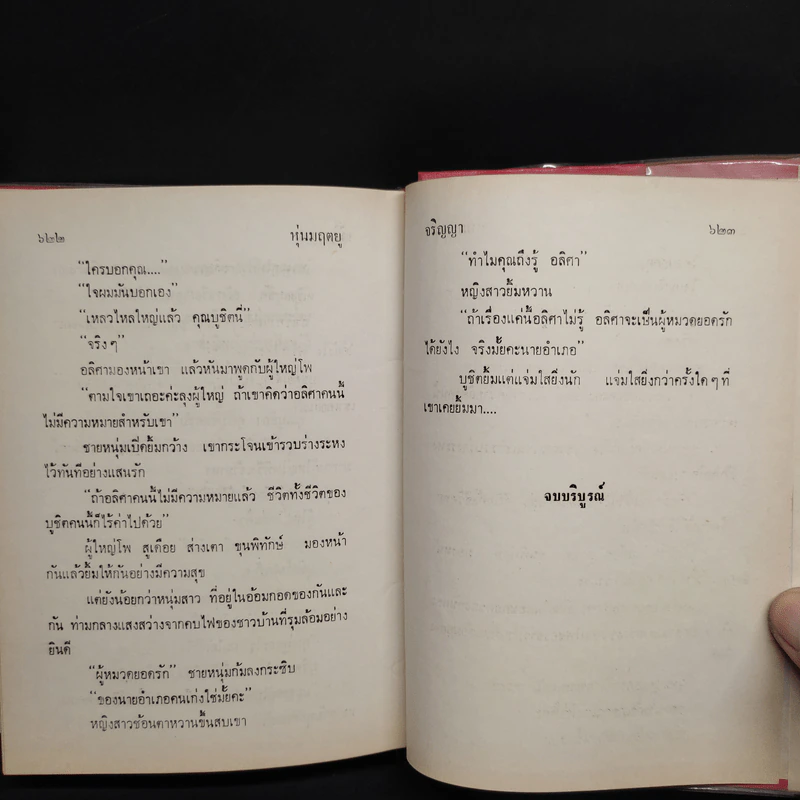 ๖๒๒ หุ่นมฤตยู
“ใครบอกคุณ....”
“ใจผมมันบอกเอง”
“เหลวไหลใหญ่แล้ว คุณบูชิตนี่”
“จริงๆ”
อลิศามองหน้าเขา แล้วหันมาพูดกับผู้ใหญ่โพ
“ตามใจเขาเถอะค่ะลุงผู้ใหญ่ ถ้าเขาคิดว่าอลิศาคนนี้
ไม่มีความหมายสำหรับเขา”
ชายหนุ่มเปิดยิ้มกว้าง เขากระโจนเข้ารวบร่างระหง
ไว้ทันทีอย่างแสนรัก
“ถ้าอลิศาคนนี้ไม่มีความหมายแล้ว ชีวิตทั้งชีวิตของ
บูชิตคนนี้ก็ไร้ค่าไปด้วย”
ผู้ใหญ่โพ สูเดือย ส่างเตา ขุนพิทักษ์ มองหน้า
กันแล้วยิ้มให้กันอย่างมีความสุข
แต่ยังน้อยกว่าหนุ่มสาว ที่อยู่ในอ้อมกอดของกันและ
กัน ท่ามกลางแสงสว่างจากคบไฟของชาวบ้านที่รุมล้อมอย่าง
ยินดี
“ผู้หมวดยอดรัก” ชายหนุ่มก้มลงกระซิบ
“ของนายอำเภอคนเก่งใช่มั้ยคะ”
หญิงสาวช้อนตาหวานขึ้นสบเขา
จริญญา ๖๒๓
“ทำไมคุณถึงรู้ อลิศา”
หญิงสาวยิ้มหวาน
“ถ้าเรื่องแค่นี้อลิศาไม่รู้ อลิศาจะเป็นผู้หมวดยอดรัก
ได้ยังไง จริงมั้ยคะนายอำเภอ”
บูชิตยิ้มแต่แจ่มใสยิ่งนัก แจ่มใสยิ่งกว่าครั้งใดๆที่
เขาเคยยิ้มมา....
จบบริบูรณ์